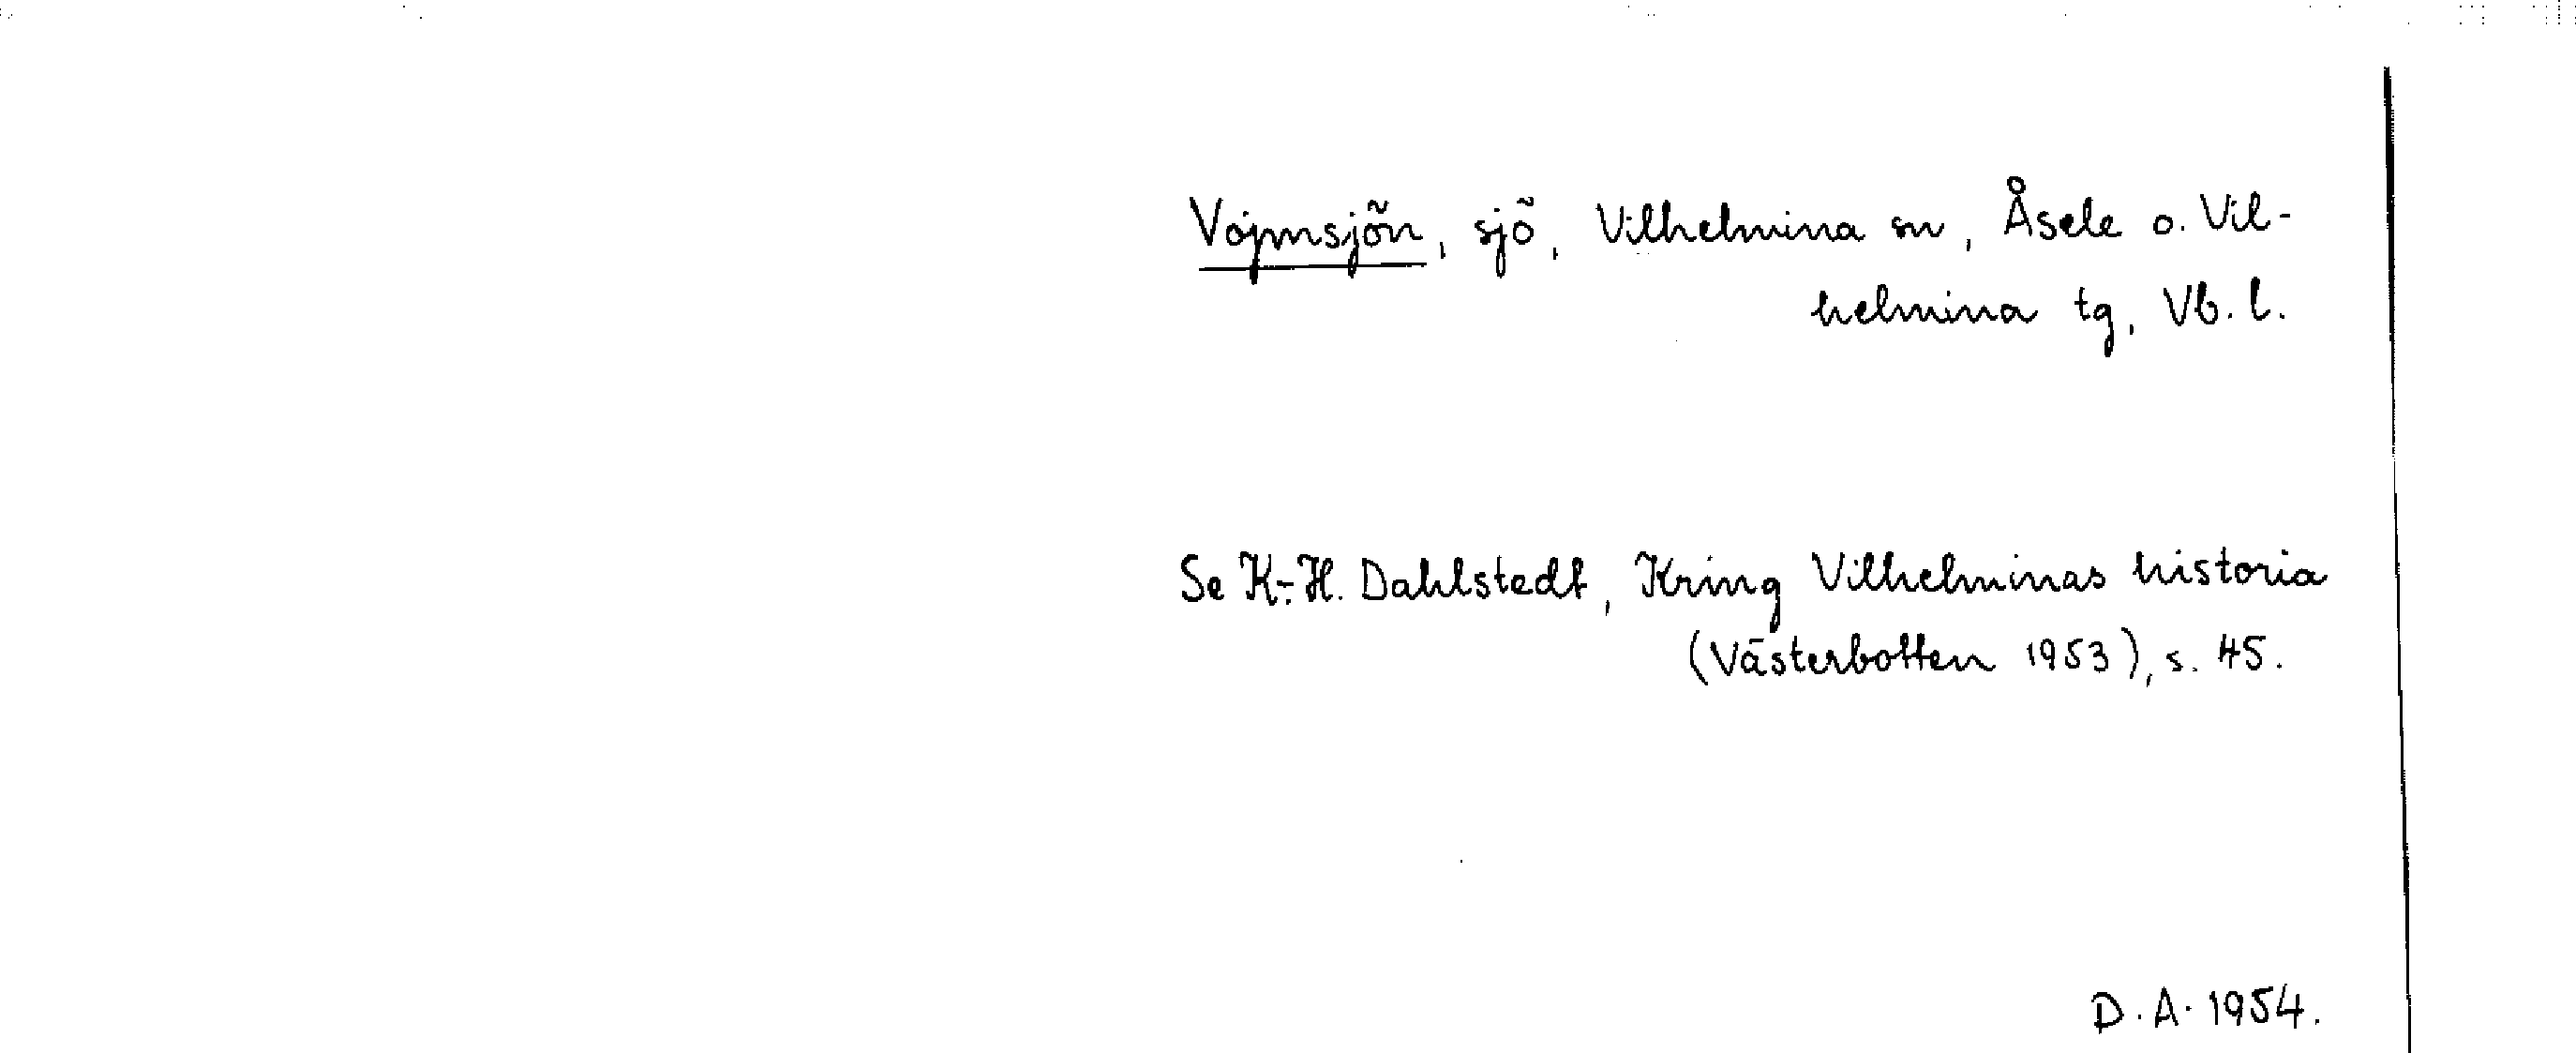 Vojmsjön, sjö, Vilhelmina sn, Åsele o. Vil-
helmina tg, Vb. l.
Se K.-H. Dahlstedt, Kring Vilhelminas historia
(Västerbotten 1953), s. 45.
D. A. 1954.